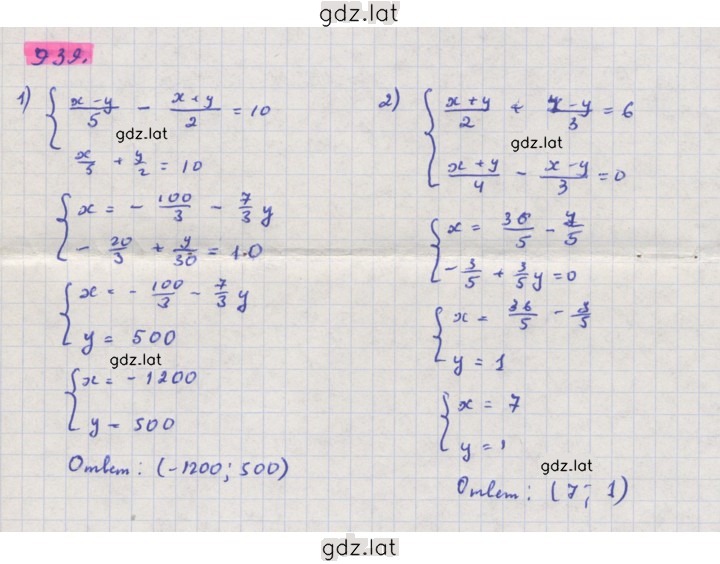 gdz.lat
939.
1) { (x-y)/5 - (x+y)/2 = 10
gdz.lat
x/5 + y/2 = 10
{ x = - 100/3 - 7/3 y
- 20/3 + y/30 = 10
{ x = - 100/3 - 7/3 y
y = 500
gdz.lat
{ x = - 1200
y = 500
Ответ: (-1200; 500)
2) { (x+y)/2 + (x-y)/3 = 6
gdz.lat
(x+y)/4 - (x-y)/3 = 0
{ x = 36/5 - y/5
- 3/5 + 3/5 y = 0
{ x = 36/5 -
y = 1
{ x = 7
y = 1
gdz.lat
Ответ: (7; 1)
gdz.lat